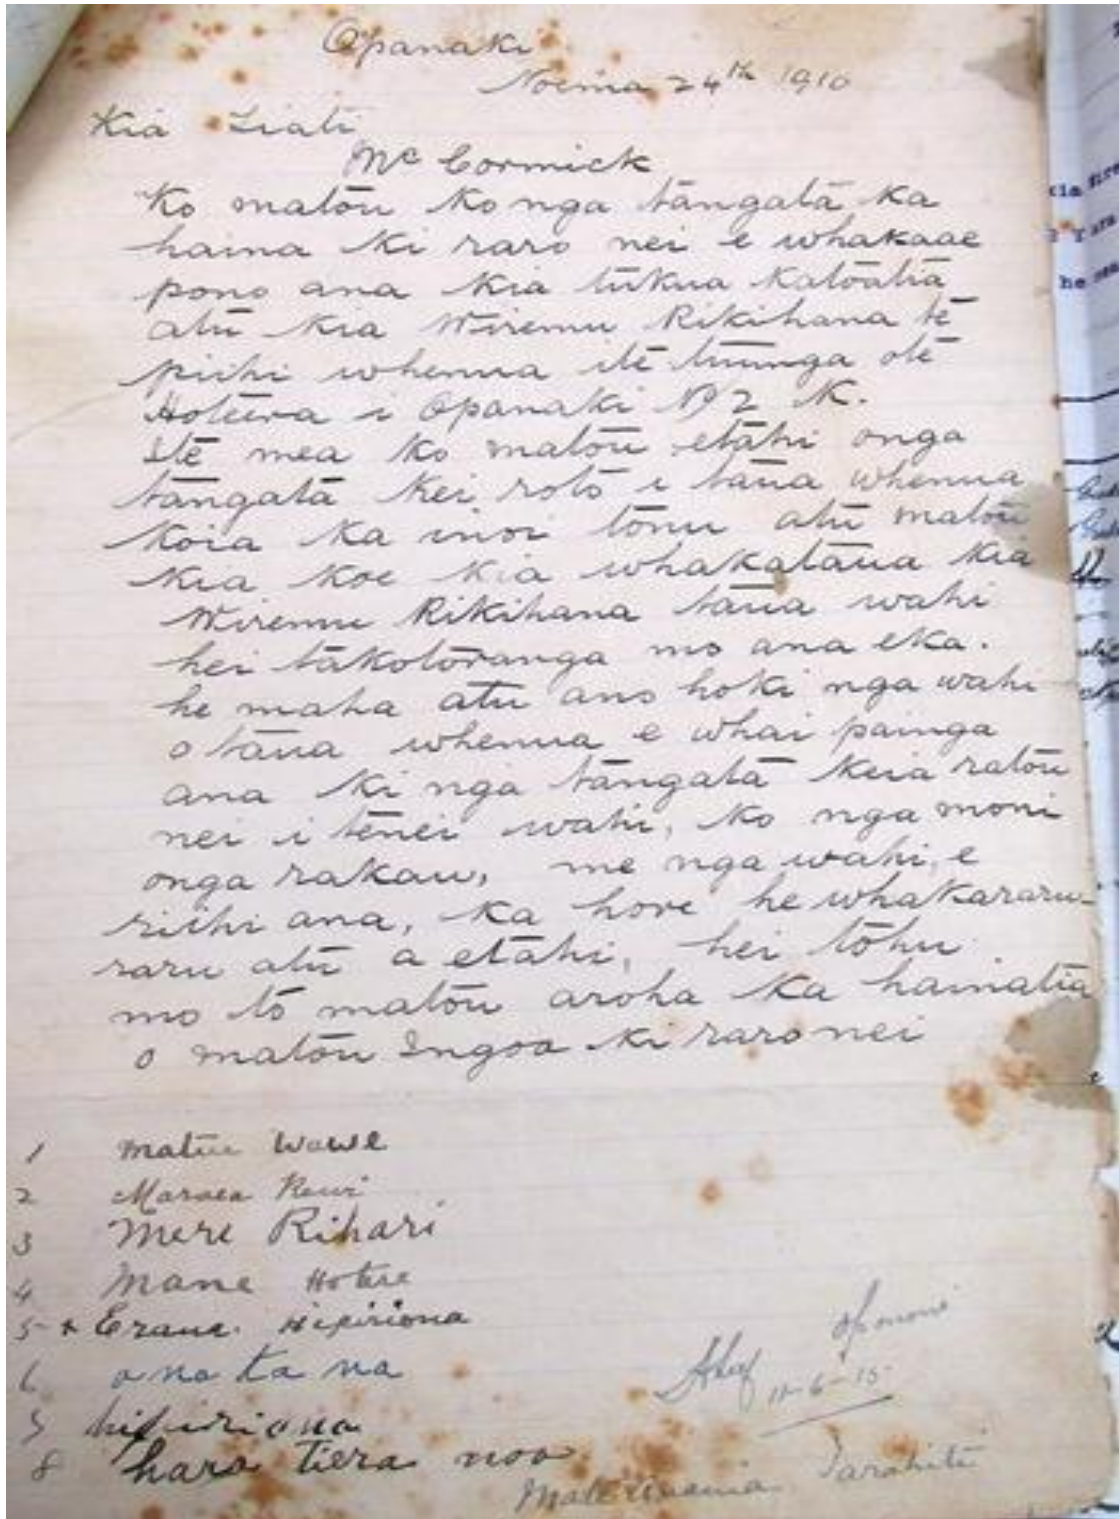 Opanaki
Noema 24th 1910
Kia Tiati
Mc Cormick
Ko matou ko nga tangata ka
haina ki raro nei e whakaae
pono ana kia tukua katoatia
atu kia Wiremu Rikihana te
piihi whenua ite tuunga ote
Hoteera i Opanaki No 2 K.
Ite mea ko matou etahi onga
tangata kei roto i taua whenua
koia ka inoi tonu atu matou
kia koe kia whakataua kia
Wiremu Rikihana taua wahi
hei takotoranga mo ana eka.
he maha atu ano hoki nga wahi
o taua whenua e whai painga
ana ki nga tangata keia ratou
nei i tenei wahi, ko nga moni
onga rakau, me nga wahi, e
riihi ana, ka hore he whakararu-
raru atu a etahi, hei tohu
mo to matou aroha ka hainatia
o matou Ingoa ki raro nei
1 Matiu Wawe
2 Maraea Rewi
3 Mere Rihari
4 Mane Hotere
5 x Hipiriona
6 a na ta na
7 hipiriona
8 hara tiera noa
Opononi
11-6-15
Tarahiti